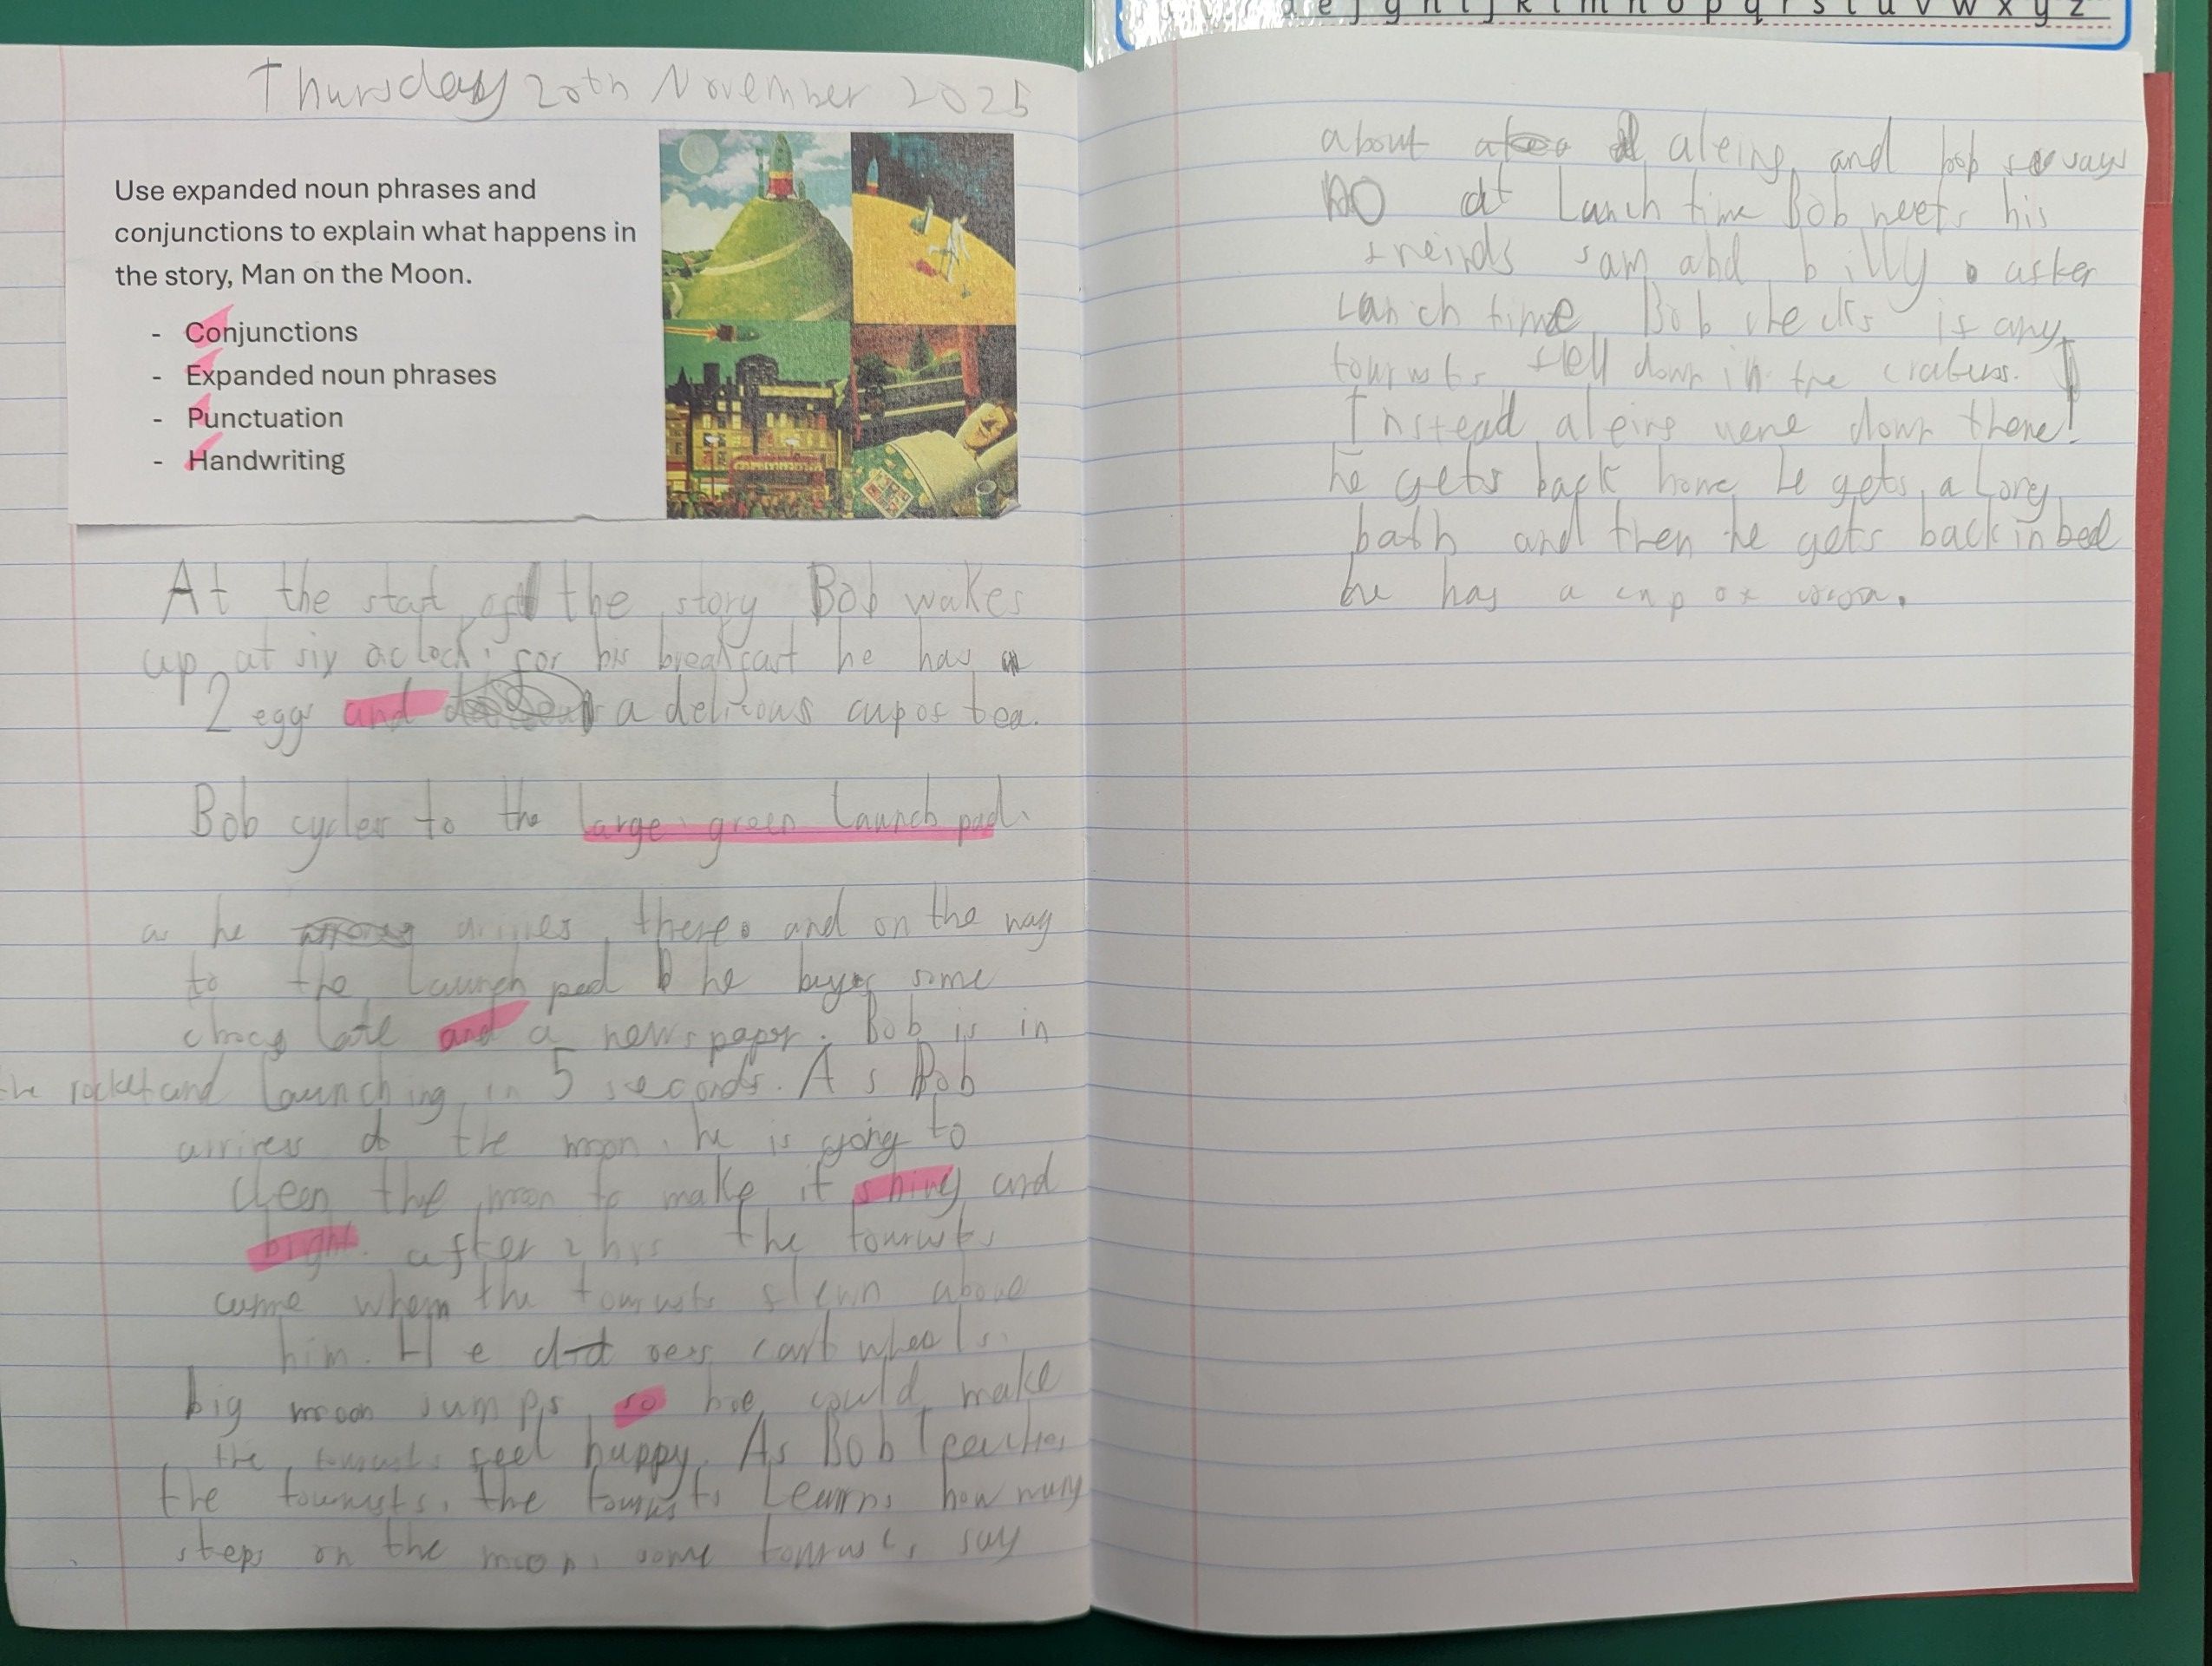 a e f g h i j k l m n o p q r s t u v w x y z
Thursday 20th November 2025
Use expanded noun phrases and
conjunctions to explain what happens in
the story, Man on the Moon.
- Conjunctions
- Expanded noun phrases
- Punctuation
- Handwriting
At the start of the story Bob wakes
up at six aclock. for his breakfart he has
2 eggs and a delitous cup of tea.
Bob cycles to the large green launch pad.
as he arrives there. and on the way
to the launch pad he buyes some
choclate and a newspaper. Bob is in
the rocket and launching in 5 seconds. As Bob
arrives at the moon. he is going to
cleen the moon to make it shiny and
bight. after 2 hrs the tourists
came when the tourists flewn above
him. He did cart wheels.
big moon jumps so he could make
the tourists feel happy. As Bob teaches
the tourists. the tourists learns how many
steps on the moon. some tourists say
about aleins and bob says
no at Lunch time Bob meets his
freinds sam and billy. after
Lunch time Bob checks if any
tourists fell down in the craters.
Instead aleins were down there!
he gets back home he gets a long
bath and then he gets back in bed
he has a cup of cocoa.